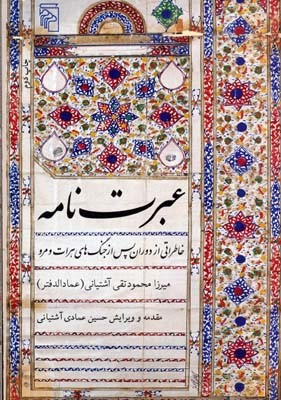 چاپ دوم
عبرت نامه
خاطراتی از دوران پس از جنگ های هرات و مرو
میرزا محمود تقی آشتیانی (عماد الدفتر)
مقدمه و ویرایش حسین عمادی آشتیانی